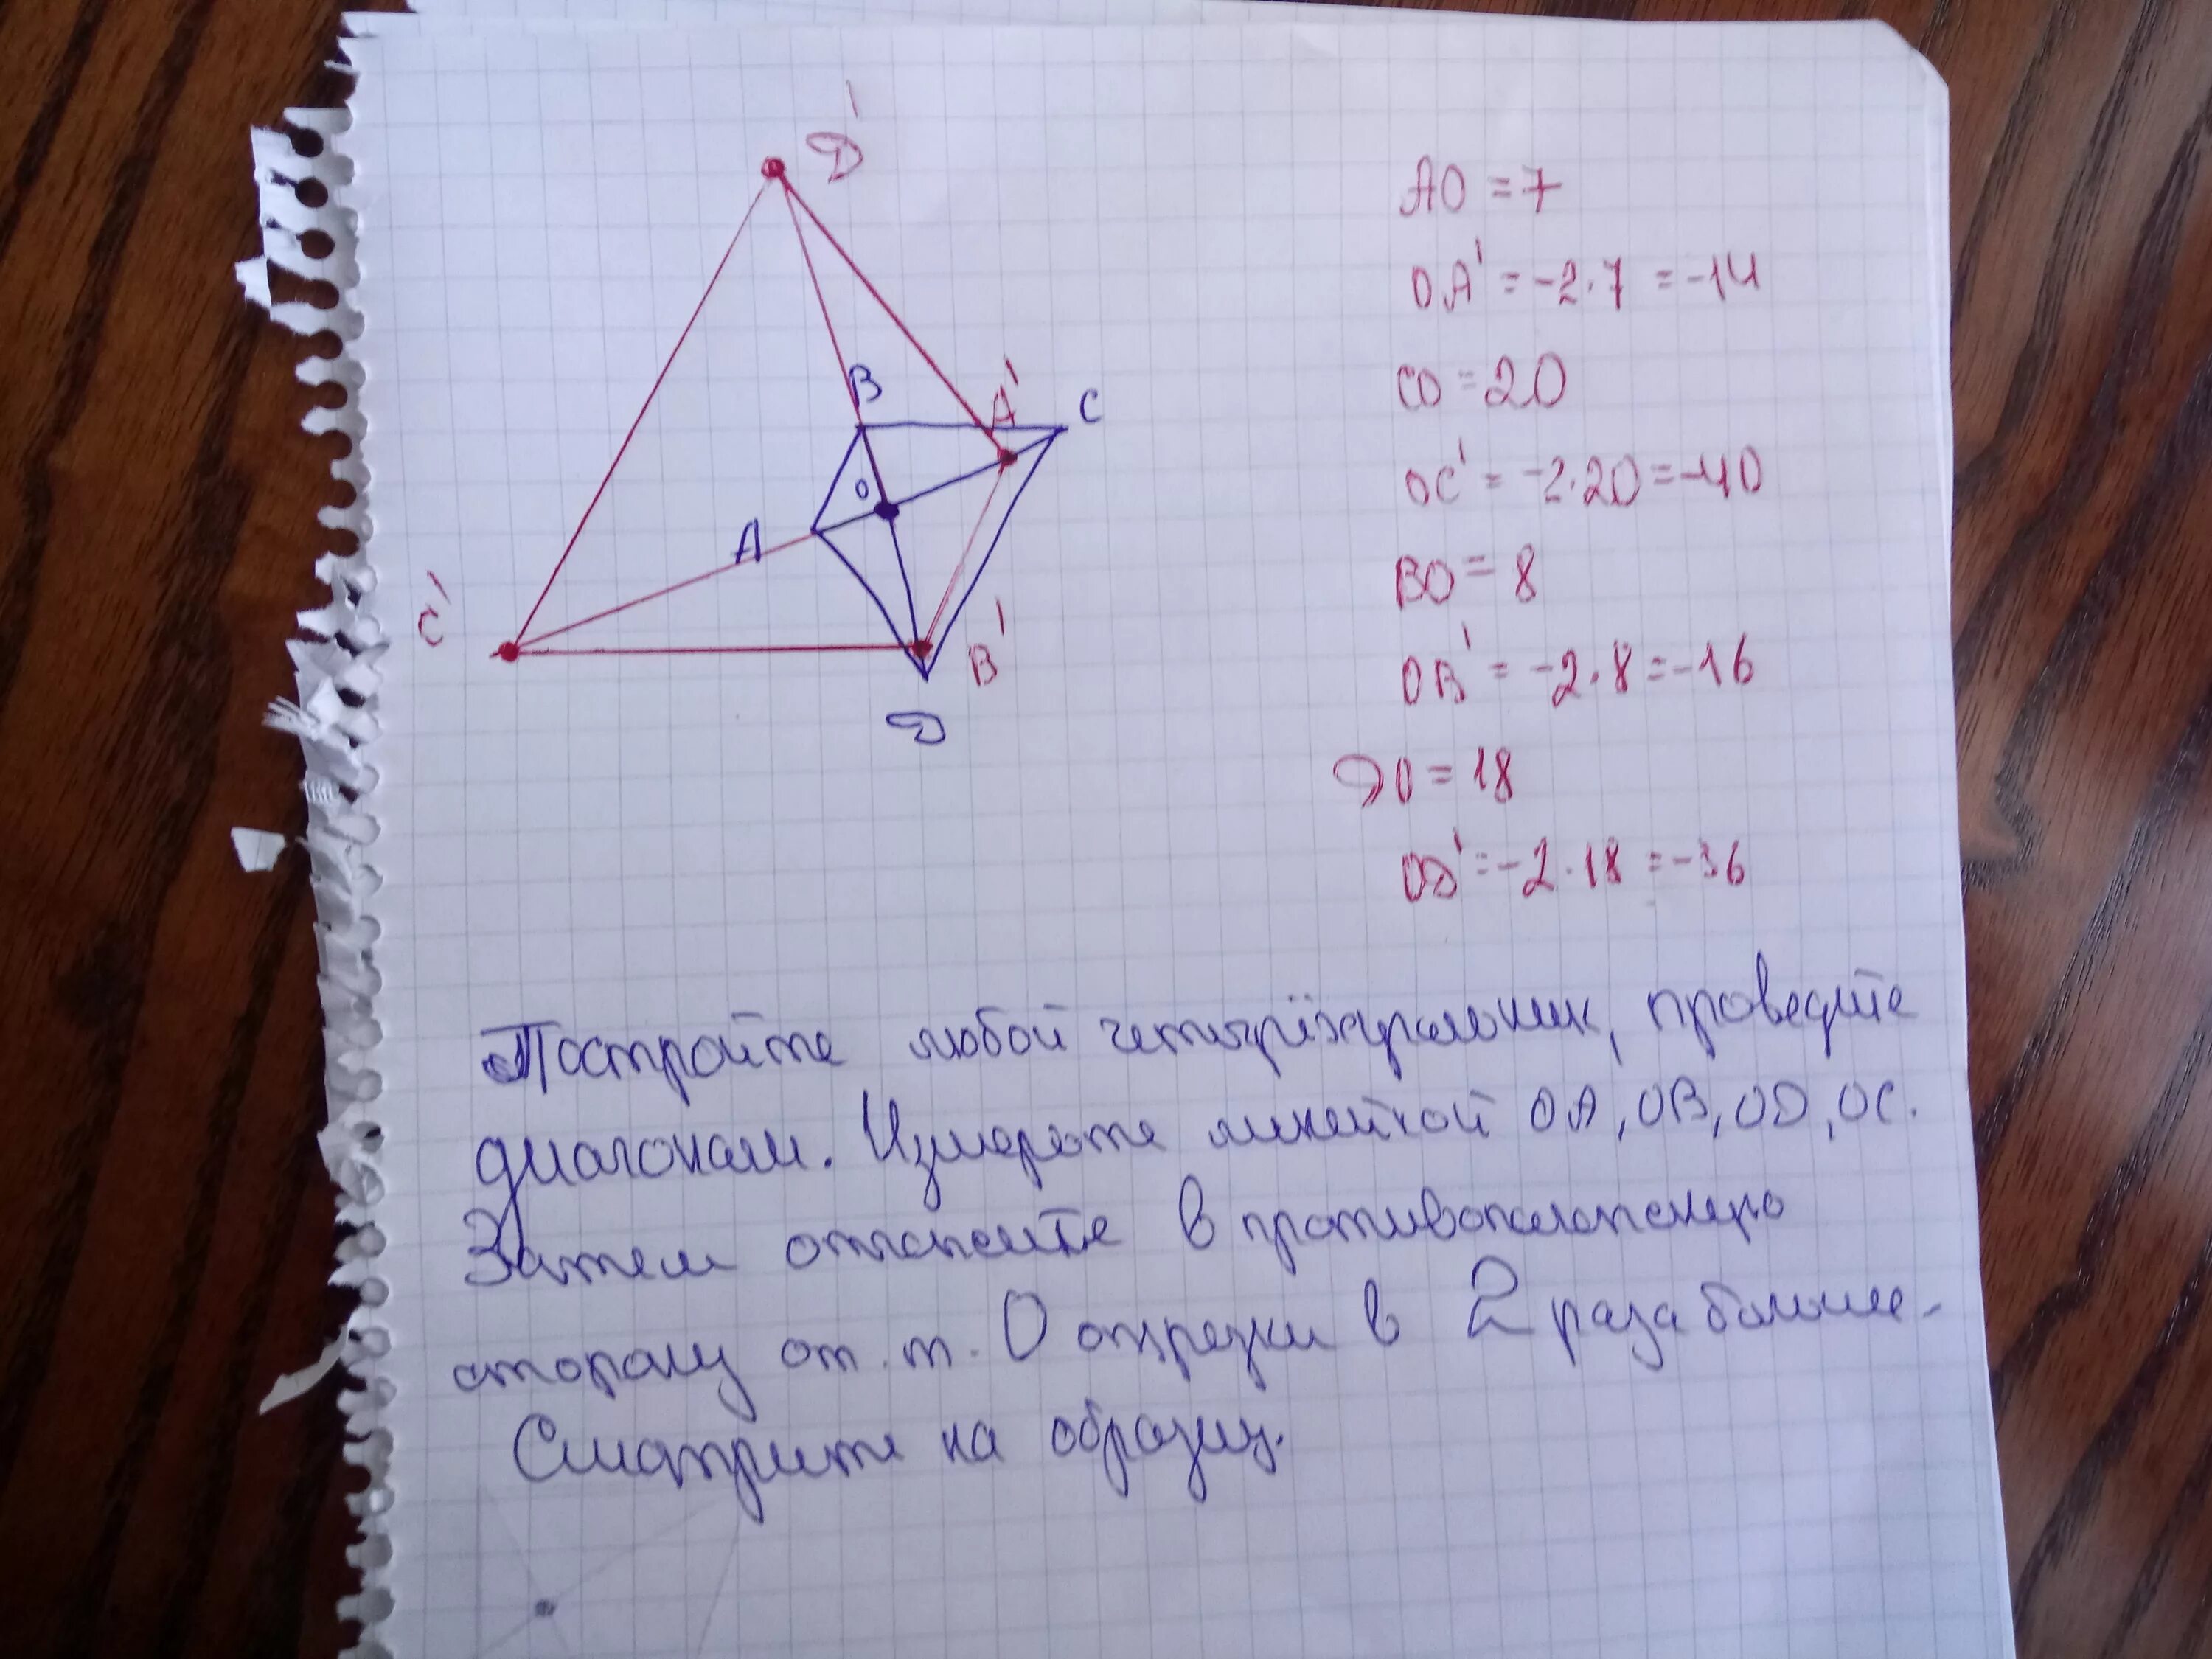 D'
B
A'
C
O
A
C'
B'
D
AO = 7
OA' = -2·7 = -14
CO = 20
OC' = -2·20 = -40
BO = 8
OB' = -2·8 = -16
DO = 18
OD' = -2·18 = -36
Постройте любой четырёхугольник, проведите
диагонали. Измерьте линейкой OA, OB, OD, OC.
Затем отложите в противоположную
сторону от т. O отрезки в 2 раза больше.
Смотрите на образец.